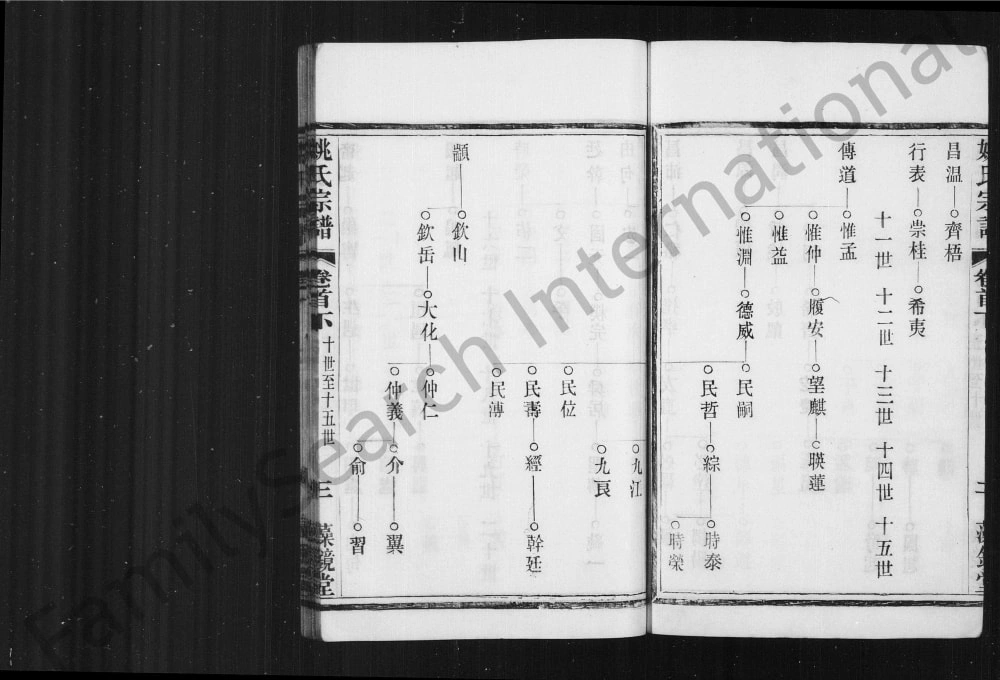 昌溫 齊梧
行表 崇桂 希夷
十一世 十二世 十三世 十四世 十五世
傳道 惟孟
惟仲 履安 望麒 暎蓮
惟益
惟淵 德威 民嗣
民哲 綜 時泰
時榮
九江
九良
民位
民壽 經 幹廷
民溥
顓 欽山
欽岳 大化 仲仁
仲義 介 翼
俞 習
姚氏宗譜 卷首下 十世至十五世 三 藻鏡堂
FamilySearch International